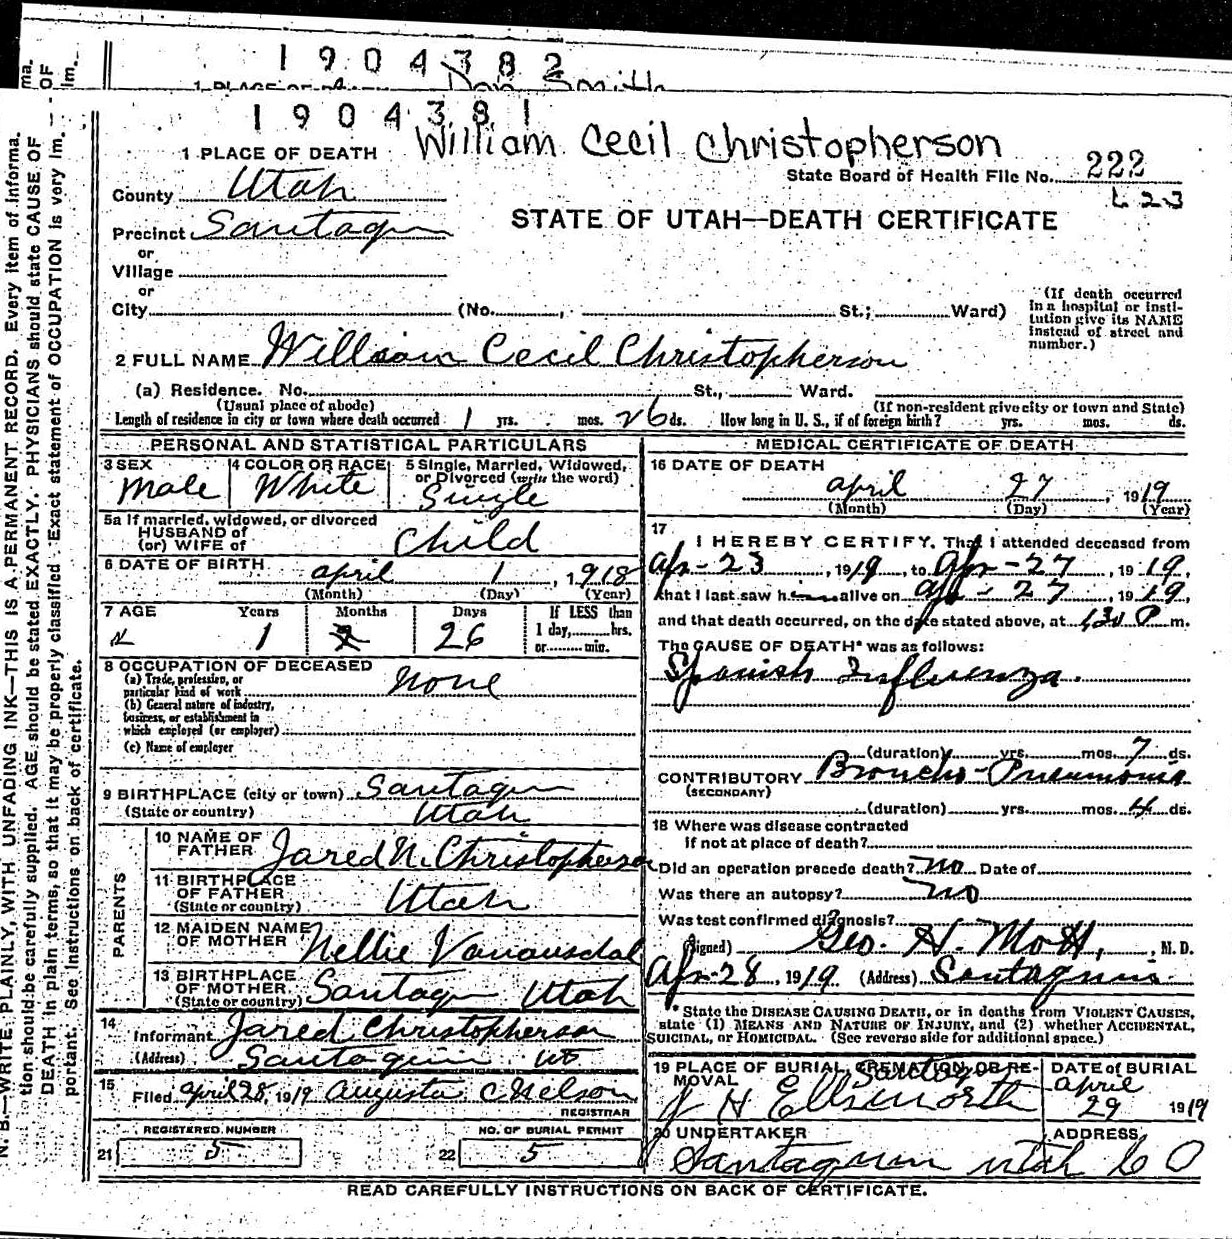 1904382
1 PLACE OF Don Smith
1904381
William Cecil Christopherson
1 PLACE OF DEATH
State Board of Health File No. 222
County Utah
623
STATE OF UTAH—DEATH CERTIFICATE
Precinct Santaquin
or
Village
or
City (No. , St.; Ward)
(If death occurred
in a hospital or insti-
tution give its NAME
instead of street and
number.)
2 FULL NAME William Cecil Christopherson
(a) Residence. No. St., Ward.
(Usual place of abode) (If non-resident give city or town and State)
Length of residence in city or town where death occurred 1 yrs. mos. 26 ds. How long in U. S., if of foreign birth? yrs. mos. ds.
PERSONAL AND STATISTICAL PARTICULARS
3 SEX 4 COLOR OR RACE 5 Single, Married, Widowed,
or Divorced (write the word)
Male White Single
5a If married, widowed, or divorced
HUSBAND of
(or) WIFE of Child
6 DATE OF BIRTH
April 1, 1918
(Month) (Day) (Year)
7 AGE Years Months Days If LESS than
1 26 1 day, hrs.
or min.
8 OCCUPATION OF DECEASED
(a) Trade, profession, or
particular kind of work None
(b) General nature of industry,
business, or establishment in
which employed (or employer)
(c) Name of employer
9 BIRTHPLACE (city or town) Santaquin
(State or country) Utah
PARENTS
10 NAME OF
FATHER Jared N. Christopherson
11 BIRTHPLACE
OF FATHER Utah
(State or country)
12 MAIDEN NAME
OF MOTHER Nellie Vanausdal
13 BIRTHPLACE
OF MOTHER Santaquin Utah
(State or country)
14
Informant Jared Christopherson
(Address) Santaquin Ut
15
Filed April 28, 1919 Augusta C Nelson
REGISTRAR
REGISTERED NUMBER NO. OF BURIAL PERMIT
21 5 22 5
MEDICAL CERTIFICATE OF DEATH
16 DATE OF DEATH
April 27, 1919
(Month) (Day) (Year)
17
I HEREBY CERTIFY, That I attended deceased from
Apr-23, 1919, to Apr-27, 1919,
that I last saw h alive on Apr-27, 1919,
and that death occurred, on the date stated above, at 1,30 P m.
The CAUSE OF DEATH* was as follows:
Spanish Influenza.
(duration) yrs. mos. 7 ds.
CONTRIBUTORY Broncho-Pneumonia
(SECONDARY)
(duration) yrs. mos. 4 ds.
18 Where was disease contracted
if not at place of death?
Did an operation precede death? No Date of
Was there an autopsy? No
Was test confirmed diagnosis?
(Signed) Geo. H. Mott, M. D.
Apr-28, 1919 (Address) Santaquin
* State the DISEASE CAUSING DEATH, or in deaths from VIOLENT CAUSES,
state (1) MEANS AND NATURE OF INJURY, and (2) whether ACCIDENTAL,
SUICIDAL, or HOMICIDAL. (See reverse side for additional space.)
19 PLACE OF BURIAL, CREMATION, OR RE-
MOVAL Santaquin
DATE of BURIAL
April
29 1919
J H Ellsworth
20 UNDERTAKER ADDRESS
Santaquin Utah Co
READ CAREFULLY INSTRUCTIONS ON BACK OF CERTIFICATE.
N. B.—WRITE PLAINLY, WITH UNFADING INK—THIS IS A PERMANENT RECORD. Every item of informa-
tion should be carefully supplied. AGE should be stated EXACTLY. PHYSICIANS should state CAUSE OF
DEATH in plain terms, so that it may be properly classified. Exact statement of OCCUPATION is very im-
portant. See instructions on back of certificate.